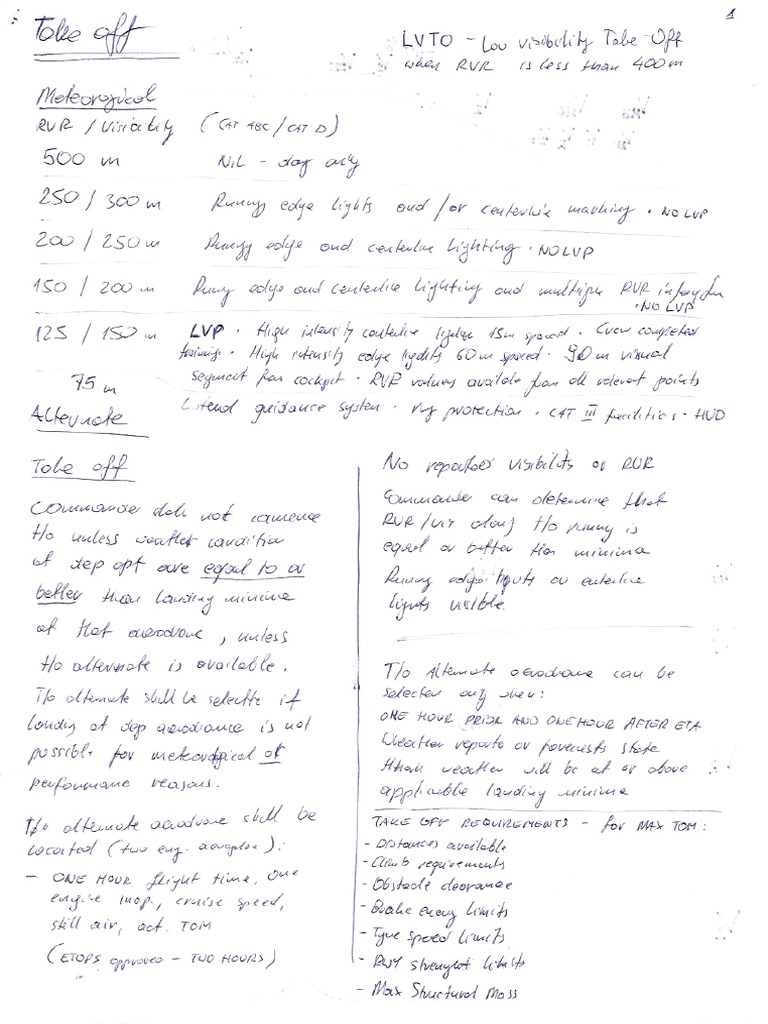 1
Take off
LVTO - Low visibility Take-Off
when RVR is less than 400m
Meteorogical
RVR / Visibility (CAT ABC / CAT D)
500 m NIL - day only
250 / 300 m Runwy edge lights and /or centerline marking • NO LVP
200 / 250 m Runwy edge and centerline lighting • NO LVP
150 / 200 m Runwy edge and centerline lighting and multiple RVR information
• NO LVP
125 / 150 m LVP • High intensity centerline lights 15m spaced • Crew completed
training • High intensity edge lights 60m spaced • 90m visual
segment from cockpit • RVR values available from all relevant points
75 m
Lateral guidance system • rwy protection • CAT III facilities • HUD
Alternate
Take off
Commander shall not commence
t/o unless weather condition
at dep apt are equal to or
better than landing minima
at that aerodrome, unless
t/o alternate is available.
T/o alternate shall be selected if
landing at dep aerodrome is not
possible for meteorological or
performance reasons.
T/o alternate aerodrome shall be
located (two eng. aeroplane):
- ONE HOUR flight time, one
engine inop, cruise speed,
still air, act. TOM
(ETOPS approved - TWO HOURS)
No reported visibility or RVR
Commander can determine that
RVR/vis along t/o runwy is
equal or better than minima
Runwy edge lights or centerline
lights visible.
T/o Alternate aerodrome can be
selected only when:
ONE HOUR PRIOR AND ONE HOUR AFTER ETA
Weather reports or forecasts state
that weather will be at or above
applicable landing minima
TAKE OFF REQUIREMENTS - for MAX TOM:
- Distances available
- Climb requirements
- Obstacle clearance
- Brake energy limits
- Tyre speed limits
- RWY strenght limits
- Max Structural Mass